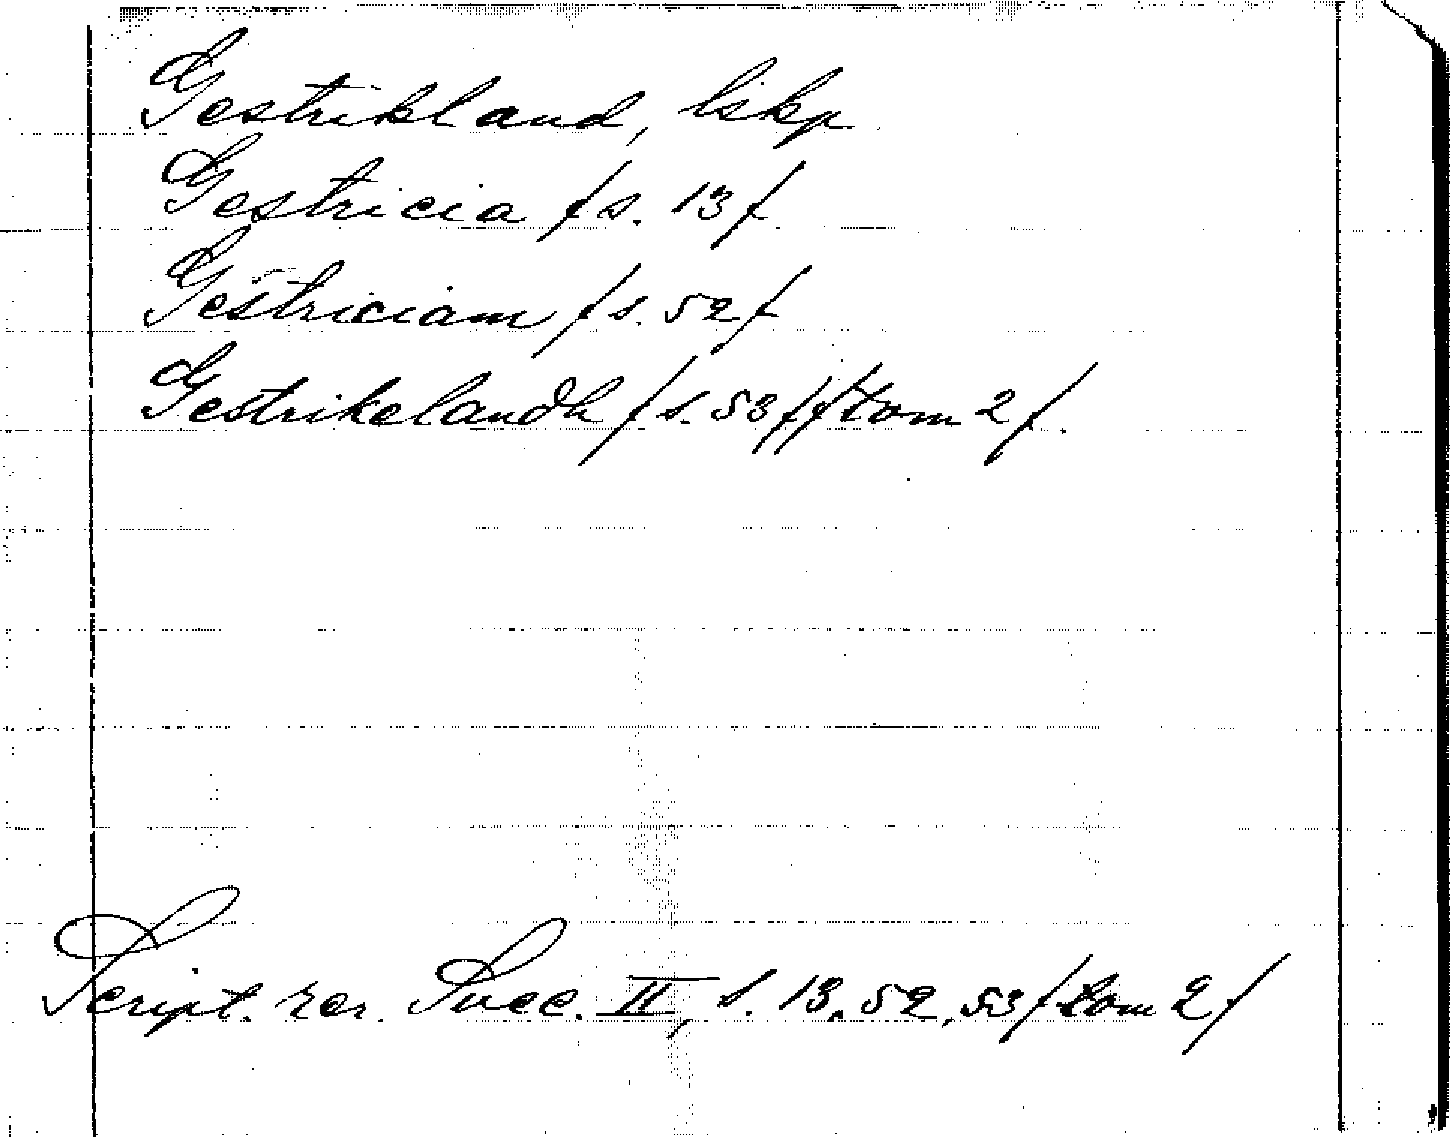 Gestrikland, lskp
Gestricia /s. 13/
Gestriciam /s. 52/
Gestrikelandh /s. 53//tom 2/.
Script. rer. Svec. II, s. 13, 52, 53/tom 2/